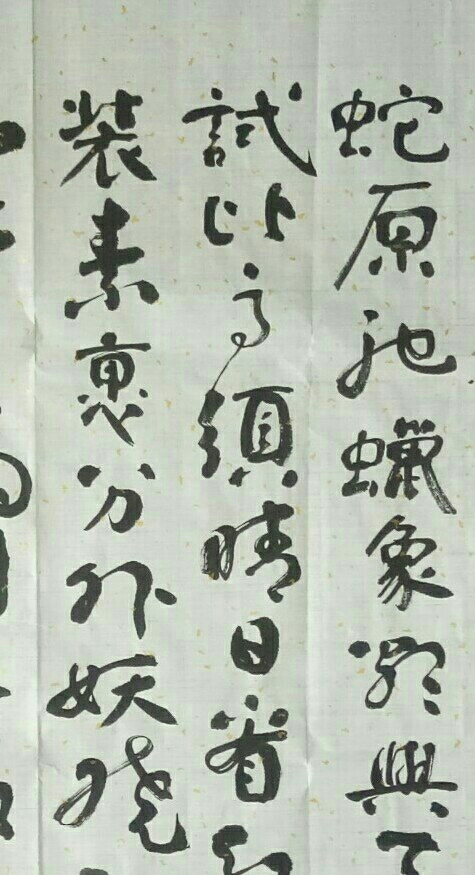 蛇原馳蠟象欲與
試比高須晴日看紅
裝素裹分外妖嬈